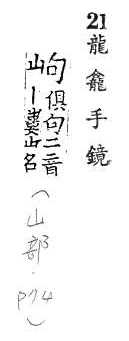 21 龍龕手鏡
岣 俱句二音
丨嶁山名
(山部.P74)